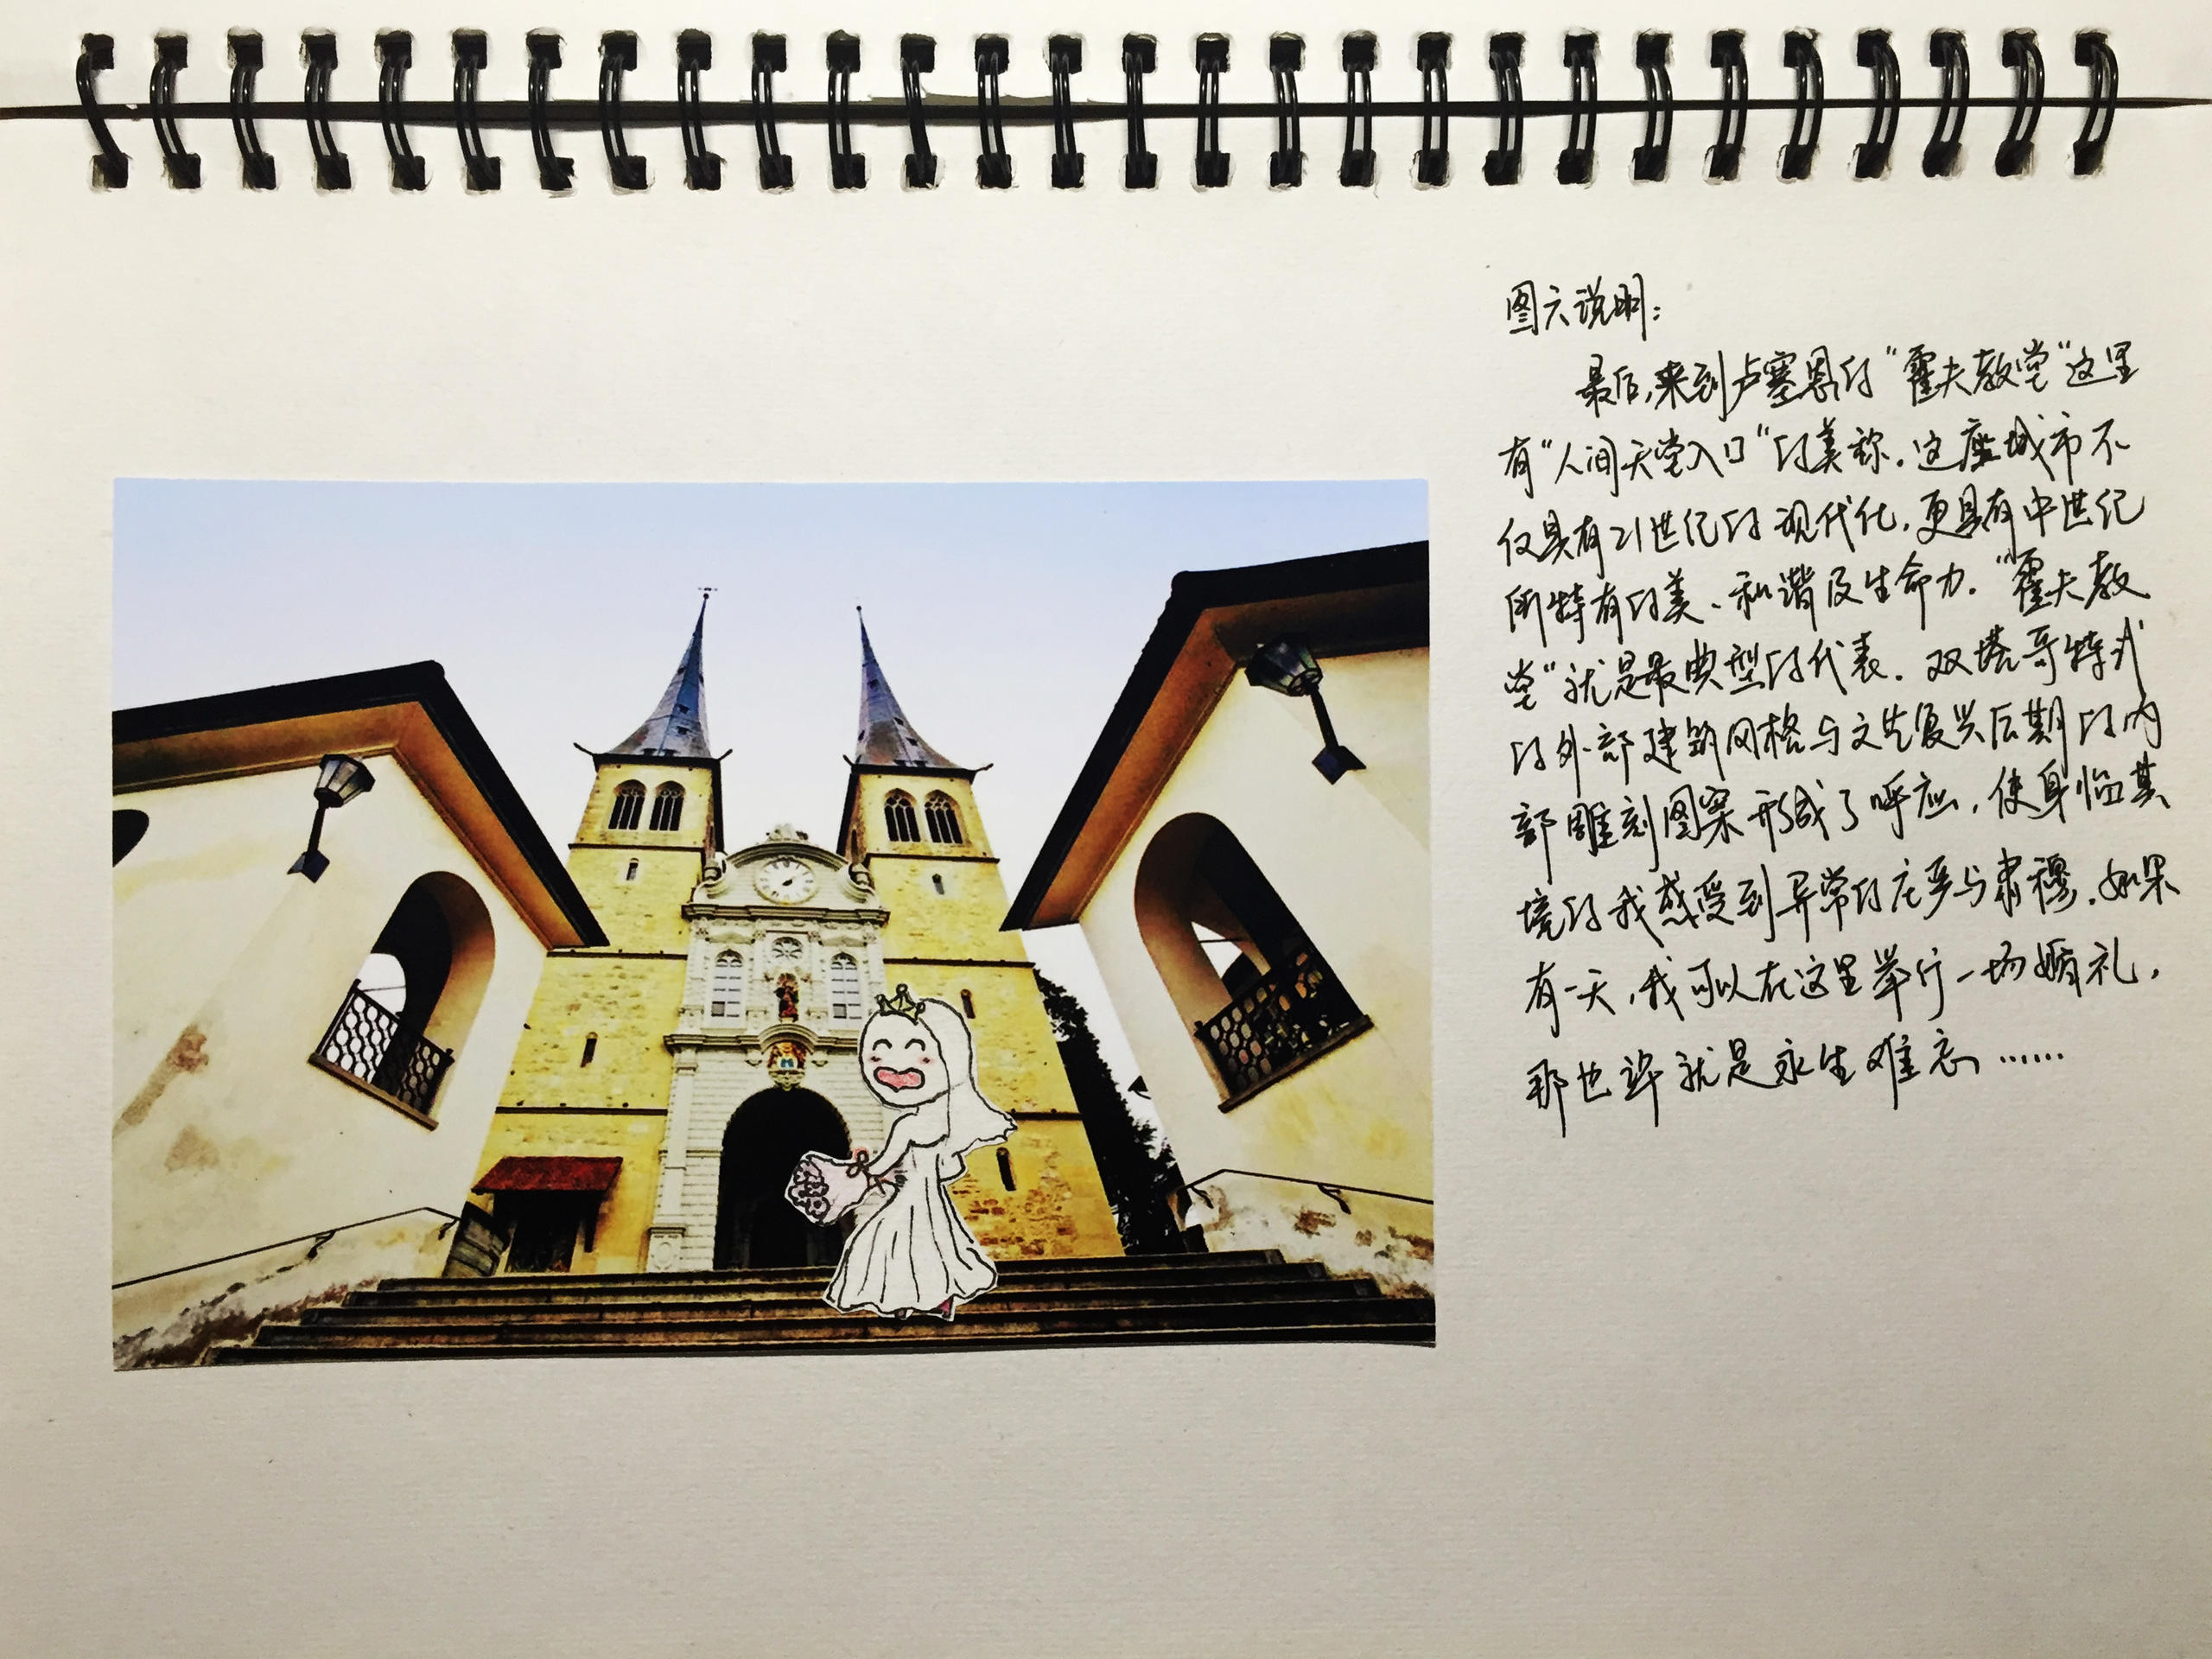 图六说明：
最后，来到卢塞恩的“霍夫教堂”这里
有“人间天堂入口”的美称。这座城市不
仅具有21世纪的现代化，更具有中世纪
所特有的美、和谐及生命力。“霍夫教
堂”就是最典型的代表。双塔哥特式
的外部建筑风格与文艺复兴后期的内
部雕刻图案形成了呼应，使身临其
境的我感受到异常的庄严与肃穆。如果
有一天，我可以在这里举行一场婚礼，
那也许就是永生难忘……